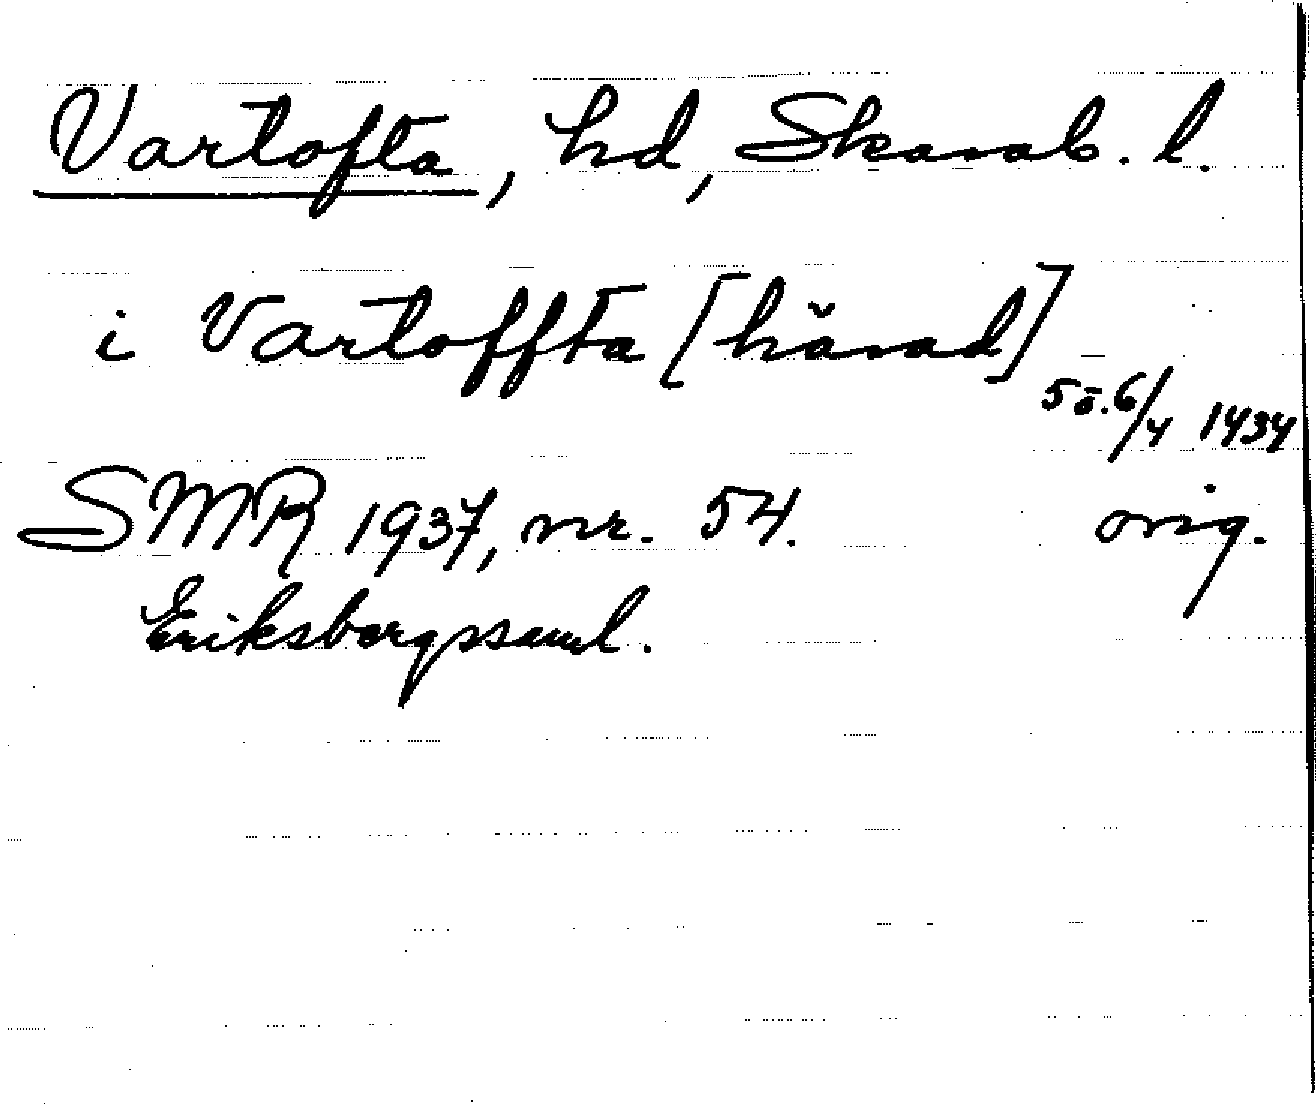 Vartofta, hd, Skarab. l.
i Vartoffta [härad]
Sö. 6/4 1434
SMR 1937, nr. 54. orig.
Eriksbergssaml.